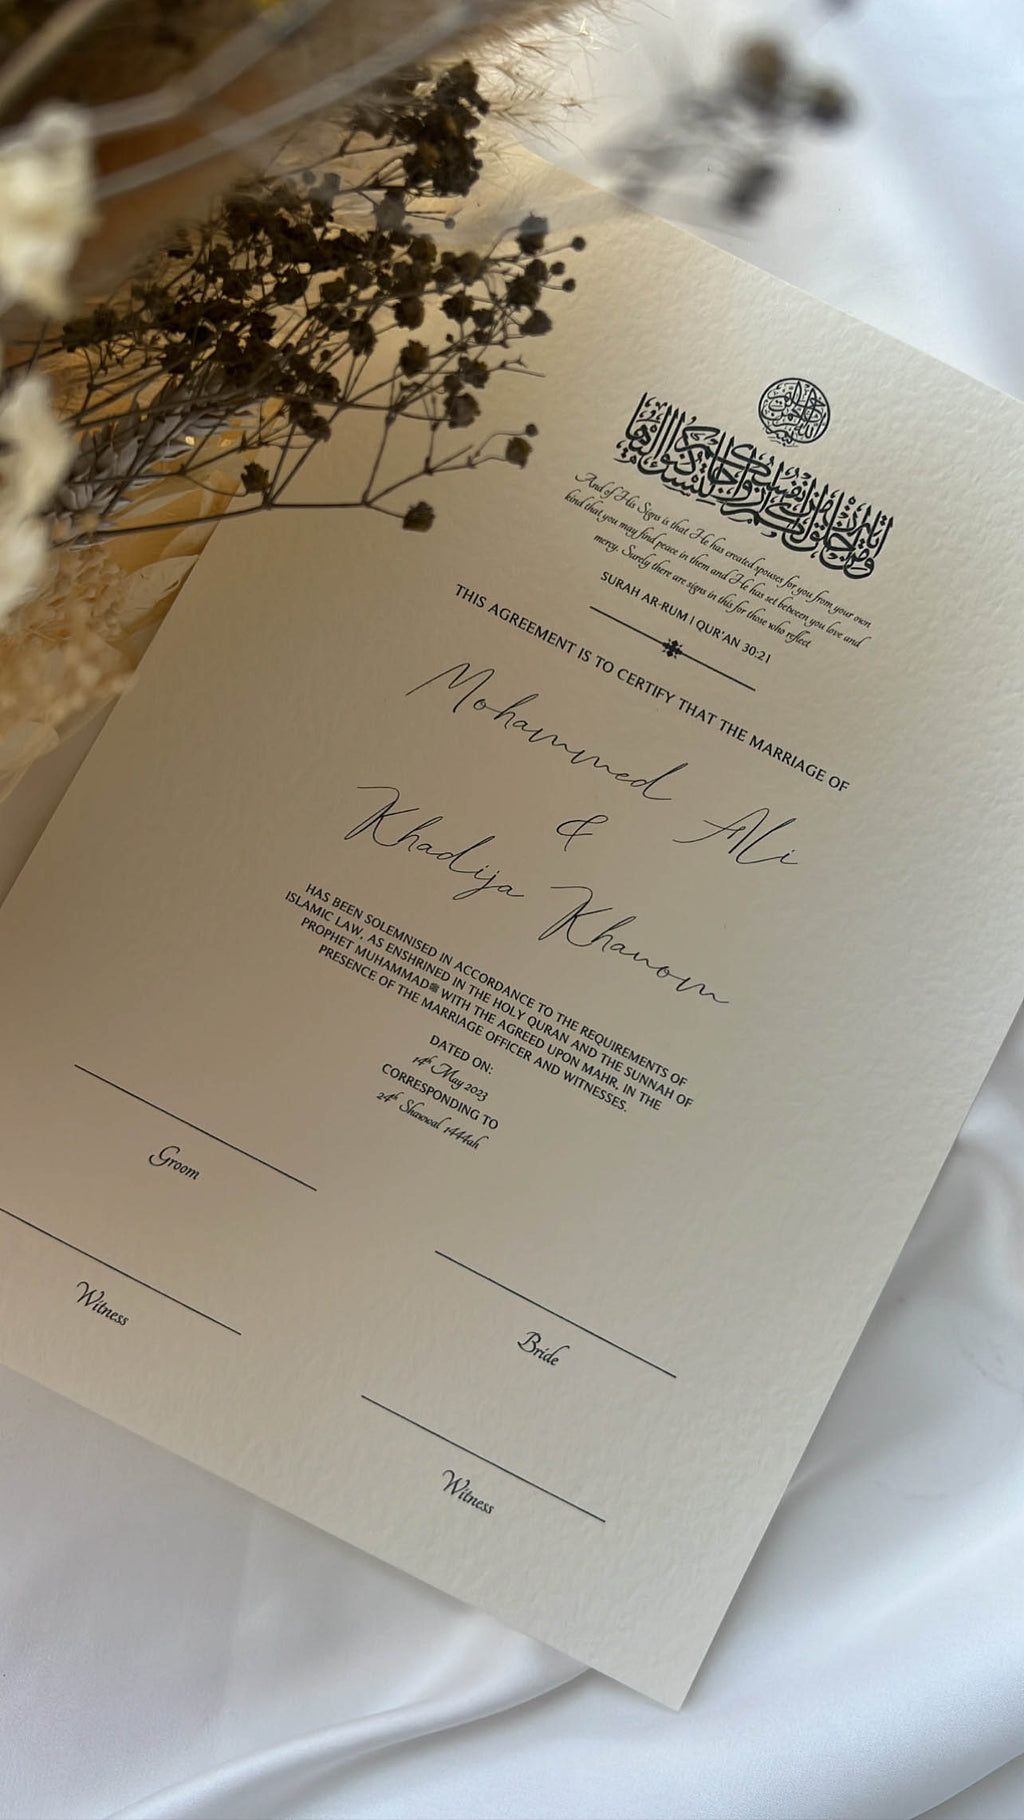 ومن آياته أن خلق لكم من أنفسكم أزواجا لتسكنوا إليها
And of His Signs is that He has created spouses for you from your own
kind that you may find peace in them and He has set between you love and
mercy. Surely there are signs in this for those who reflect
SURAH AR-RUM | QUR'AN 30:21
THIS AGREEMENT IS TO CERTIFY THAT THE MARRIAGE OF
Mohammed Ali
&
Khadija Khanom
HAS BEEN SOLEMNISED IN ACCORDANCE TO THE REQUIREMENTS OF
ISLAMIC LAW, AS ENSHRINED IN THE HOLY QURAN AND THE SUNNAH OF
PROPHET MUHAMMADﷺ WITH THE AGREED UPON MAHR, IN THE
PRESENCE OF THE MARRIAGE OFFICER AND WITNESSES.
DATED ON:
14th May 2023
CORRESPONDING TO
24th Shawwal 1444ah
Groom
Bride
Witness
Witness